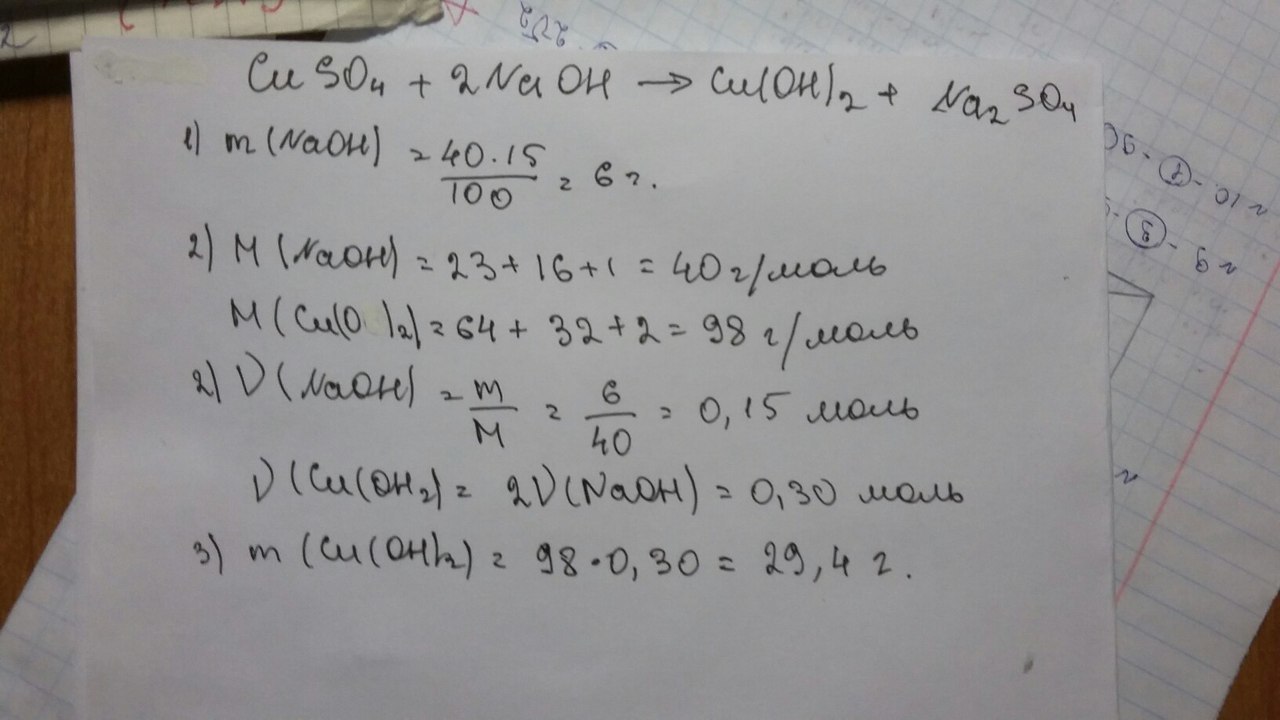 CuSO₄ + 2NaOH → Cu(OH)₂ + Na₂SO₄
1) m(NaOH) = 40·15/100 = 6 г.
2) M(NaOH) = 23 + 16 + 1 = 40 г/моль
M(Cu(O )₂) = 64 + 32 + 2 = 98 г/моль
2) ν(NaOH) = m/M = 6/40 = 0,15 моль
ν(Cu(OH₂) = 2ν(NaOH) = 0,30 моль
3) m(Cu(OH)₂) = 98·0,30 = 29,4 г.